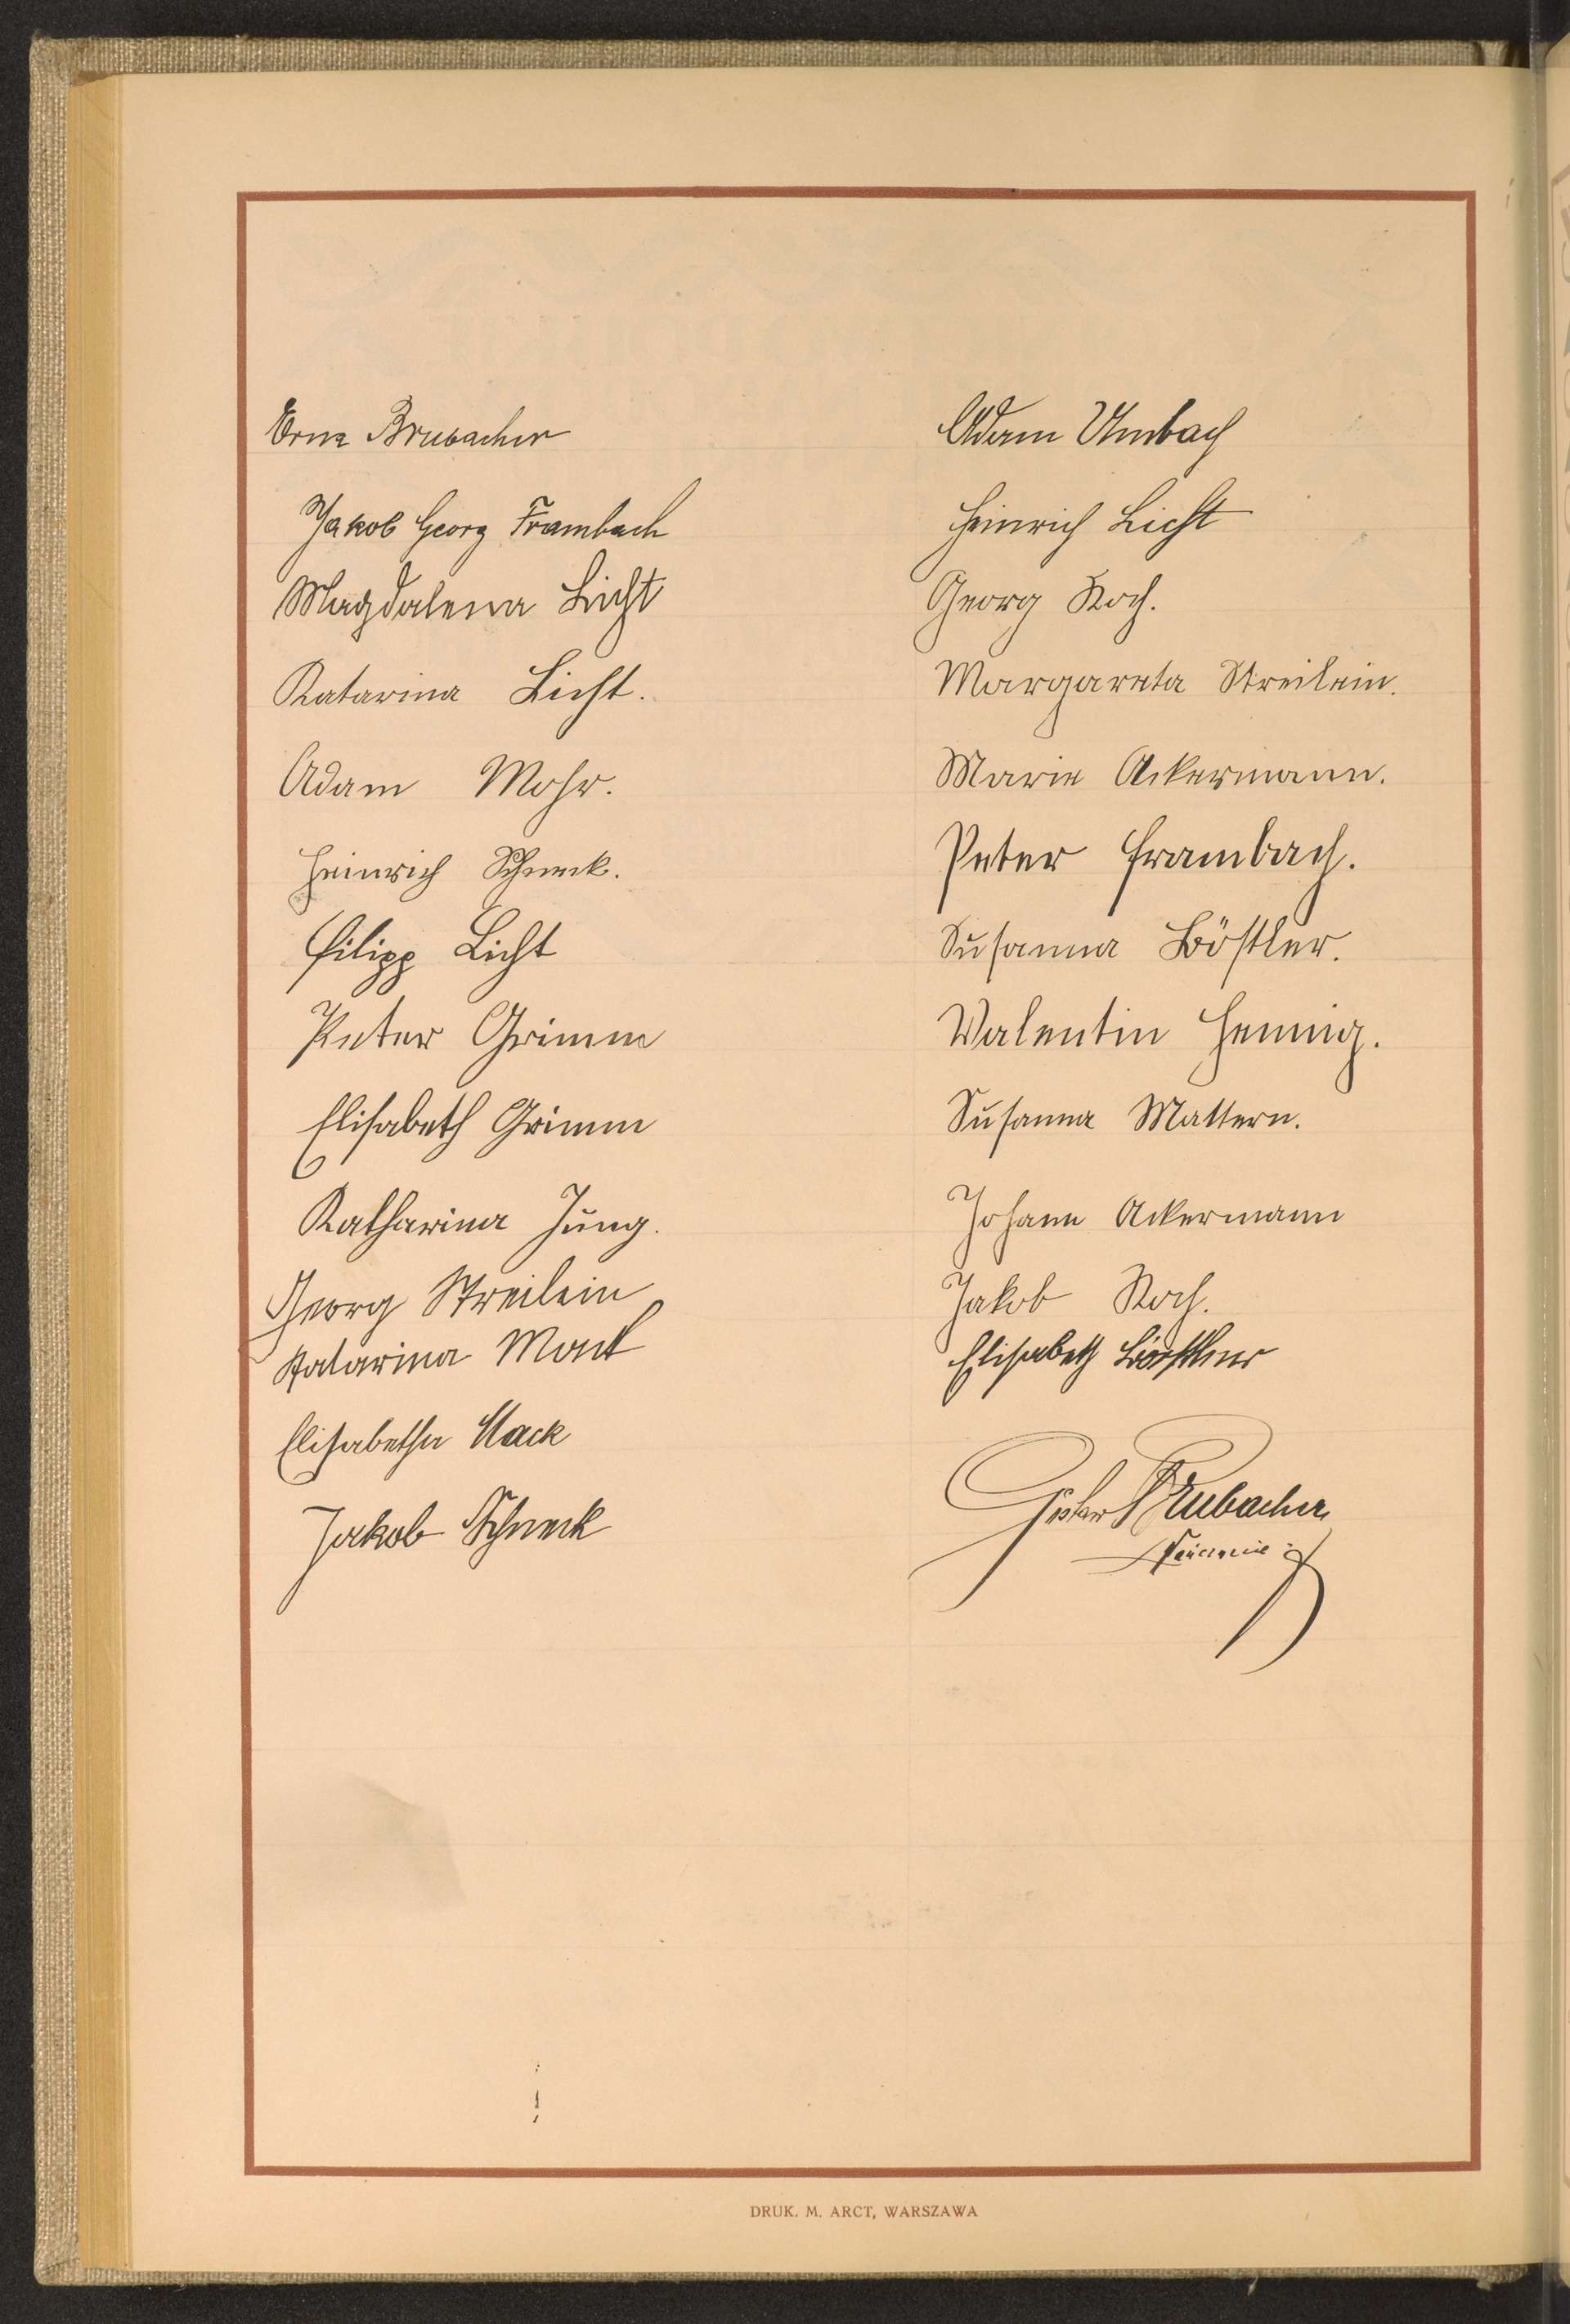 Erna Brubacher
Jakob Georg Frambach
Magdalena Licht
Katarina Licht.
Adam Mohr.
Heinrich Schneck.
Filipp Licht
Peter Grimm
Elisabeth Grimm
Katharina Jung.
Georg Streilein
Katarina
Elisabetha Mack
Jakob Schneck
Adam Umbach
Heinrich Licht
Georg Koch.
Margareta Streilein.
Marie Ackermann.
Peter Frambach.
Susanna Böstler.
Valentin Hennig.
Susanna Mattern.
Johann Ackermann
Jakob Koch.
Elisabeth
Brubacher
DRUK. M. ARCT, WARSZAWA